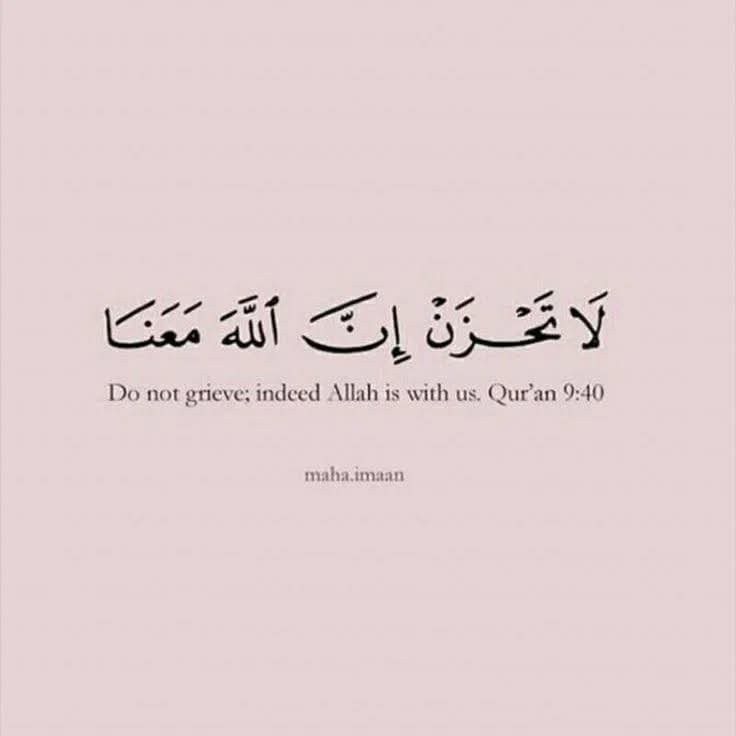 لَا تَحْزَنْ إِنَّ ٱللَّهَ مَعَنَا
Do not grieve; indeed Allah is with us. Qur’an 9:40
maha.imaan